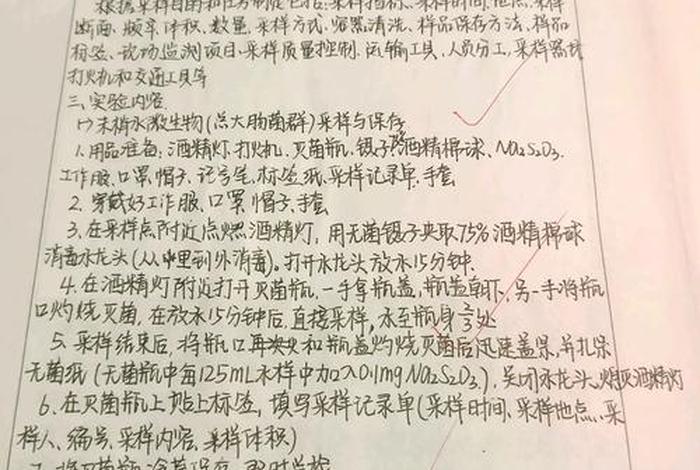 根据采样目的和任务制定它括:采样指标、采样时间、地点、采样
断面、频率、体积、数量、采样方式、容器清洗、样品保存方法、样品
标签、现场监测项目、采样质量控制、运输工具、人员分工、采样器材
打火机和交通工具等
三、实验内容
(一)末梢水微生物(总大肠菌群)采样与保存
1.用品准备:酒精灯、打火机、灭菌瓶、镊子、酒精棉球、Na2S2O3、
工作服、口罩、帽子、记号笔、标签纸、采样记录单、手套
2. 穿戴好工作服、口罩、帽子、手套
3. 在采样点附近点燃酒精灯,用无菌镊子夹取75%酒精棉球
消毒水龙头(从里到外消毒)。打开水龙头放水15分钟.
4. 在酒精灯附近打开灭菌瓶,一手拿瓶盖,瓶盖朝下,另一手将瓶
口灼烧灭菌,在放水15分钟后,直接采样,水至瓶身2/3处
5. 采样结束后,将瓶口和瓶盖灼烧灭菌后迅速盖紧,并扎紧
无菌纸(无菌瓶中每125mL水样中加入0.1mg Na2S2O3),关闭水龙头,熄灭酒精灯
6. 在灭菌瓶上贴上标签,填写采样记录单(采样时间、采样地点、采
样人、编号、采样内容、采样体积)